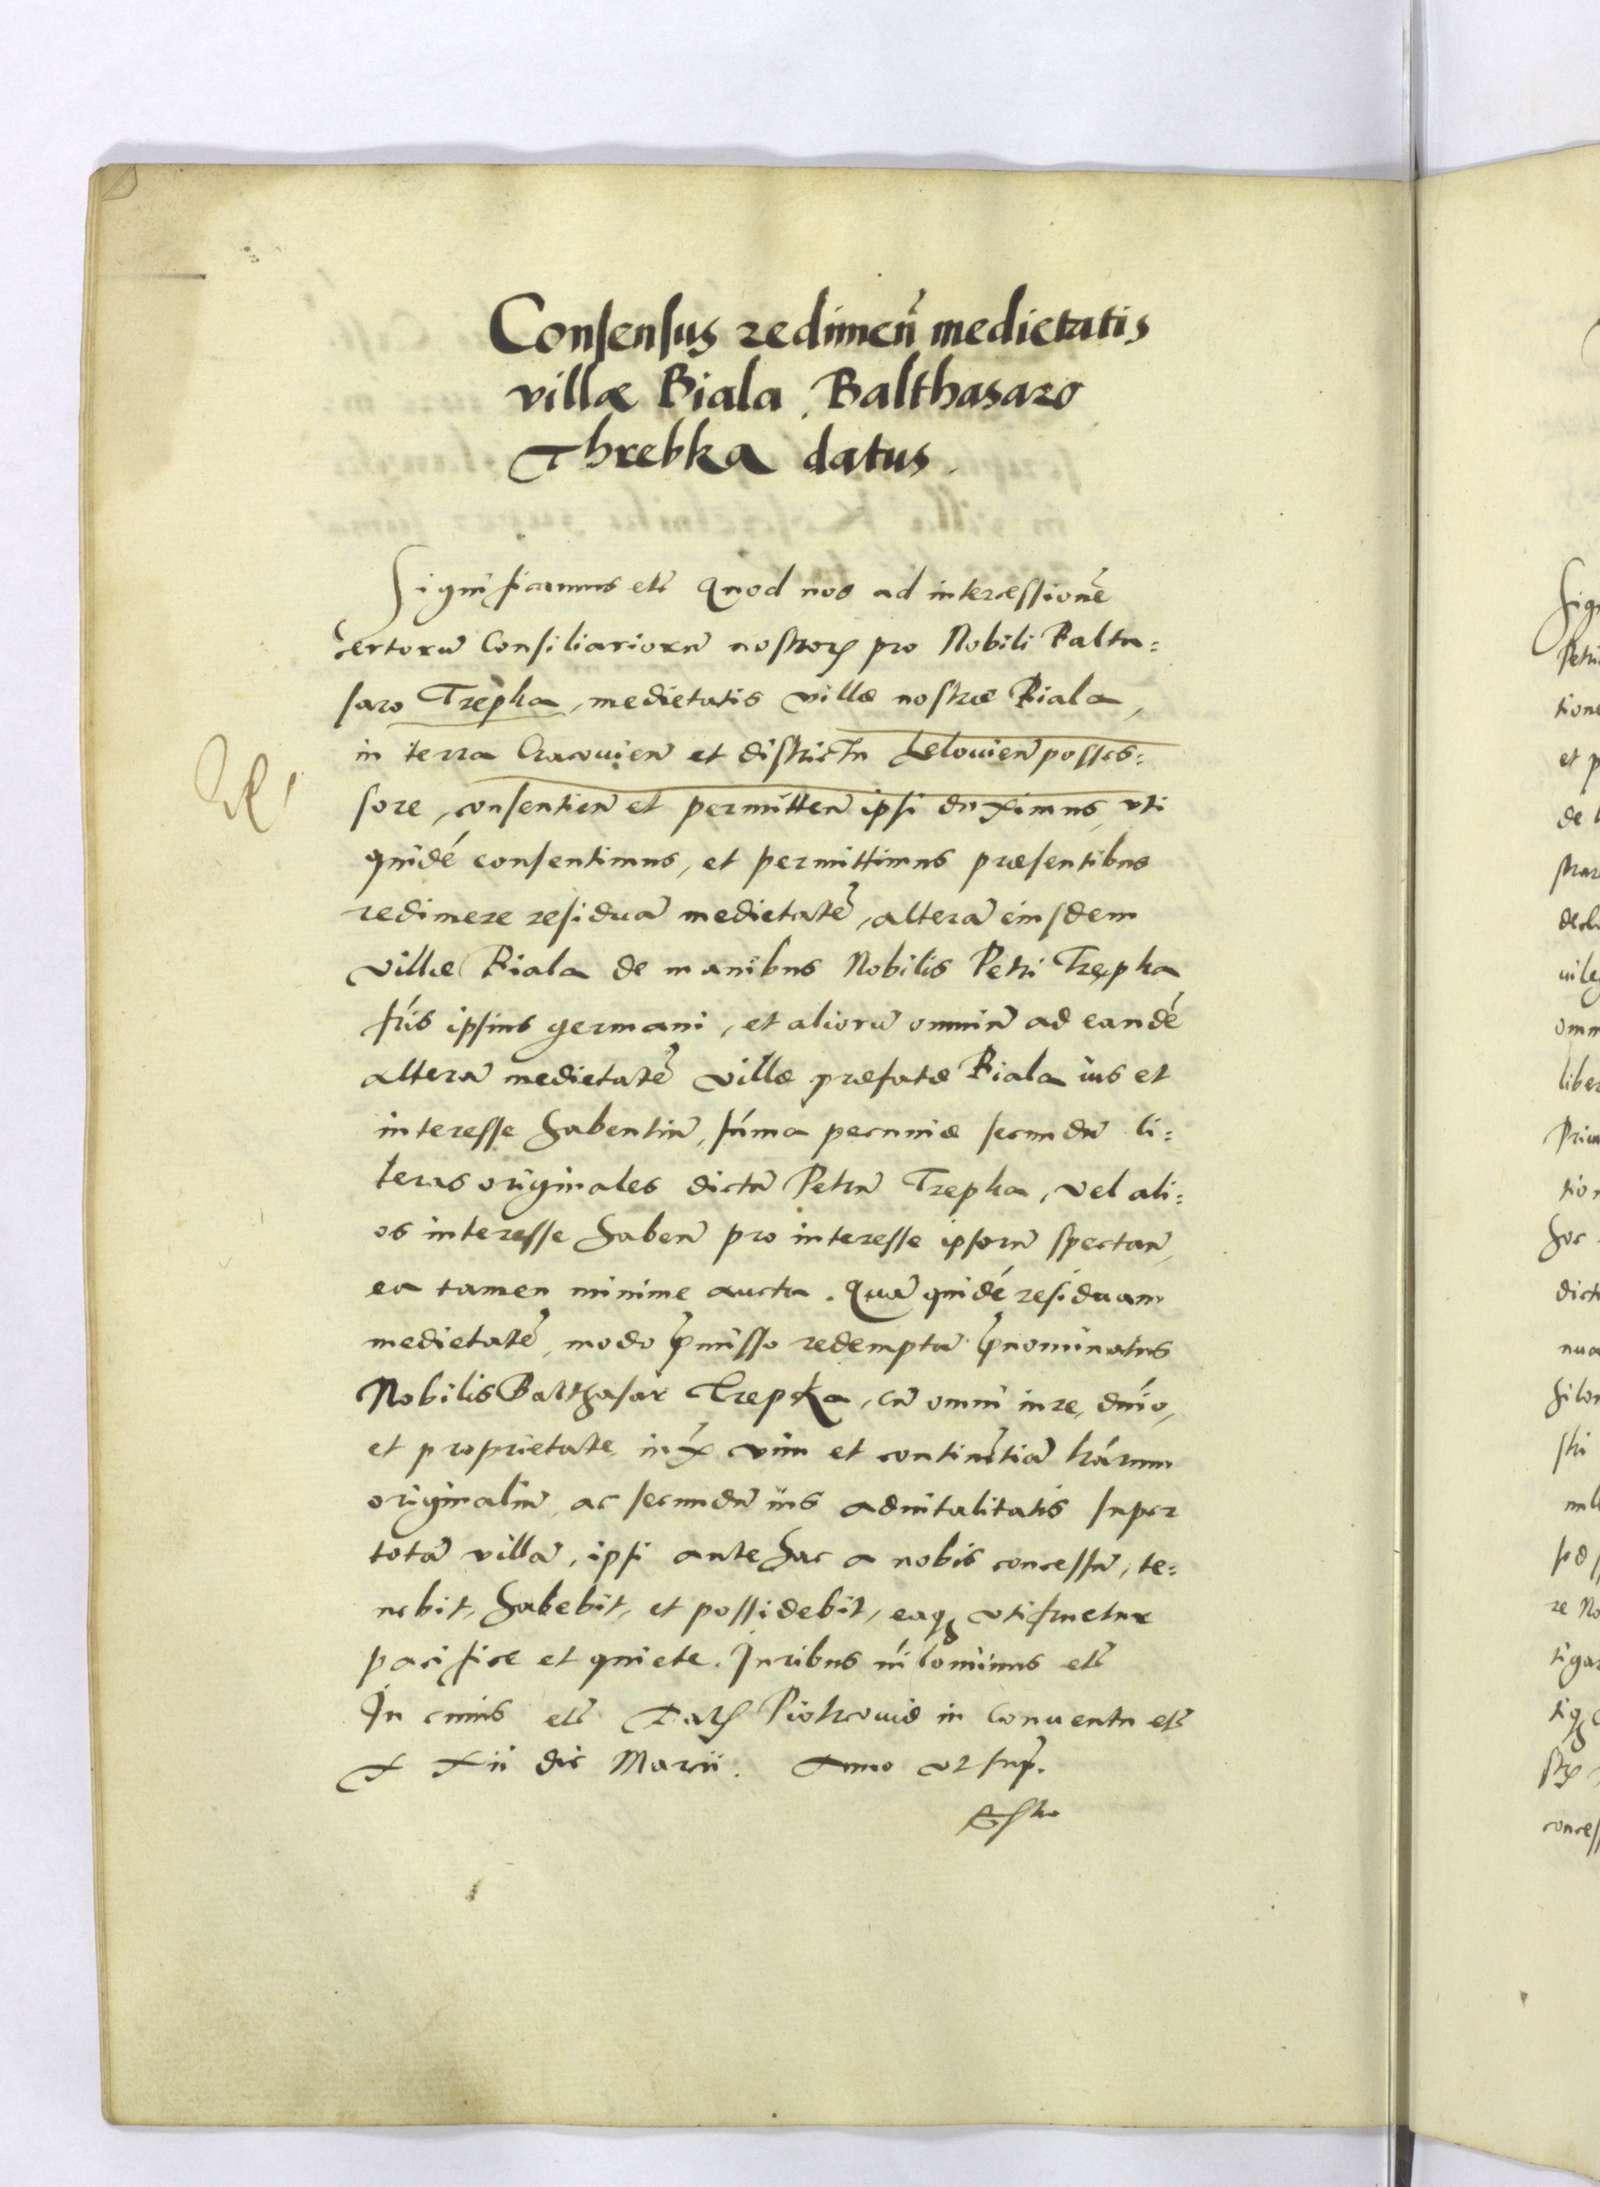 Consensus redimen̄ medietatis
villæ Biala Balthasaro
Threbka datus.
Significamus etc̄ Quod nos ad intercessionē
certorū Consiliariorū nostroꝝ pro Nobili Balta=
saro Trepka, medietatis villæ nostræ Biala,
in terra Cracouien̄ et districtu Lelouien̄ posses=
sore, consentien̄ et permitten̄ ipsi duximus, vti
quidē consentimus, et permittimus præsentibus
redimere residuā medietatē, alterā eiusdem
villæ Biala de manibus Nobilis Petri Trepka
fr̄is ipsius germani, et aliorū omniū ad eandē
alterā medietatē villæ præfatæ Biala ius et
interesse habentiū, sūma pecuniæ secundū li=
teras originales dictū Petrū Trepka, vel ali=
os interesse haben̄ pro interesse ipsorū spectan̄,
ea tamen minime aucta. Quā quidē residuam
medietatē, modo p̄misso redemptā p̄nominatus
Nobilis Balthasar Trepka, cū omni iure, dn̄io,
et proprietate, iux̄ vim et continētiā lr̄arum
originaliū, ac secundū ius aduitalitatis super
totā villā, ipsi antehac a nobis concessū, te=
nebit, habebit, et possidebit, eaqꝫ vtifruetur
pacifice et quiete. Iuribus n̄ilominus etc̄
In cuius etc̄ Datꝝ Piotrcouiæ in Conuentu etc̄
XXii die Marcii. Anno vt supˉ.